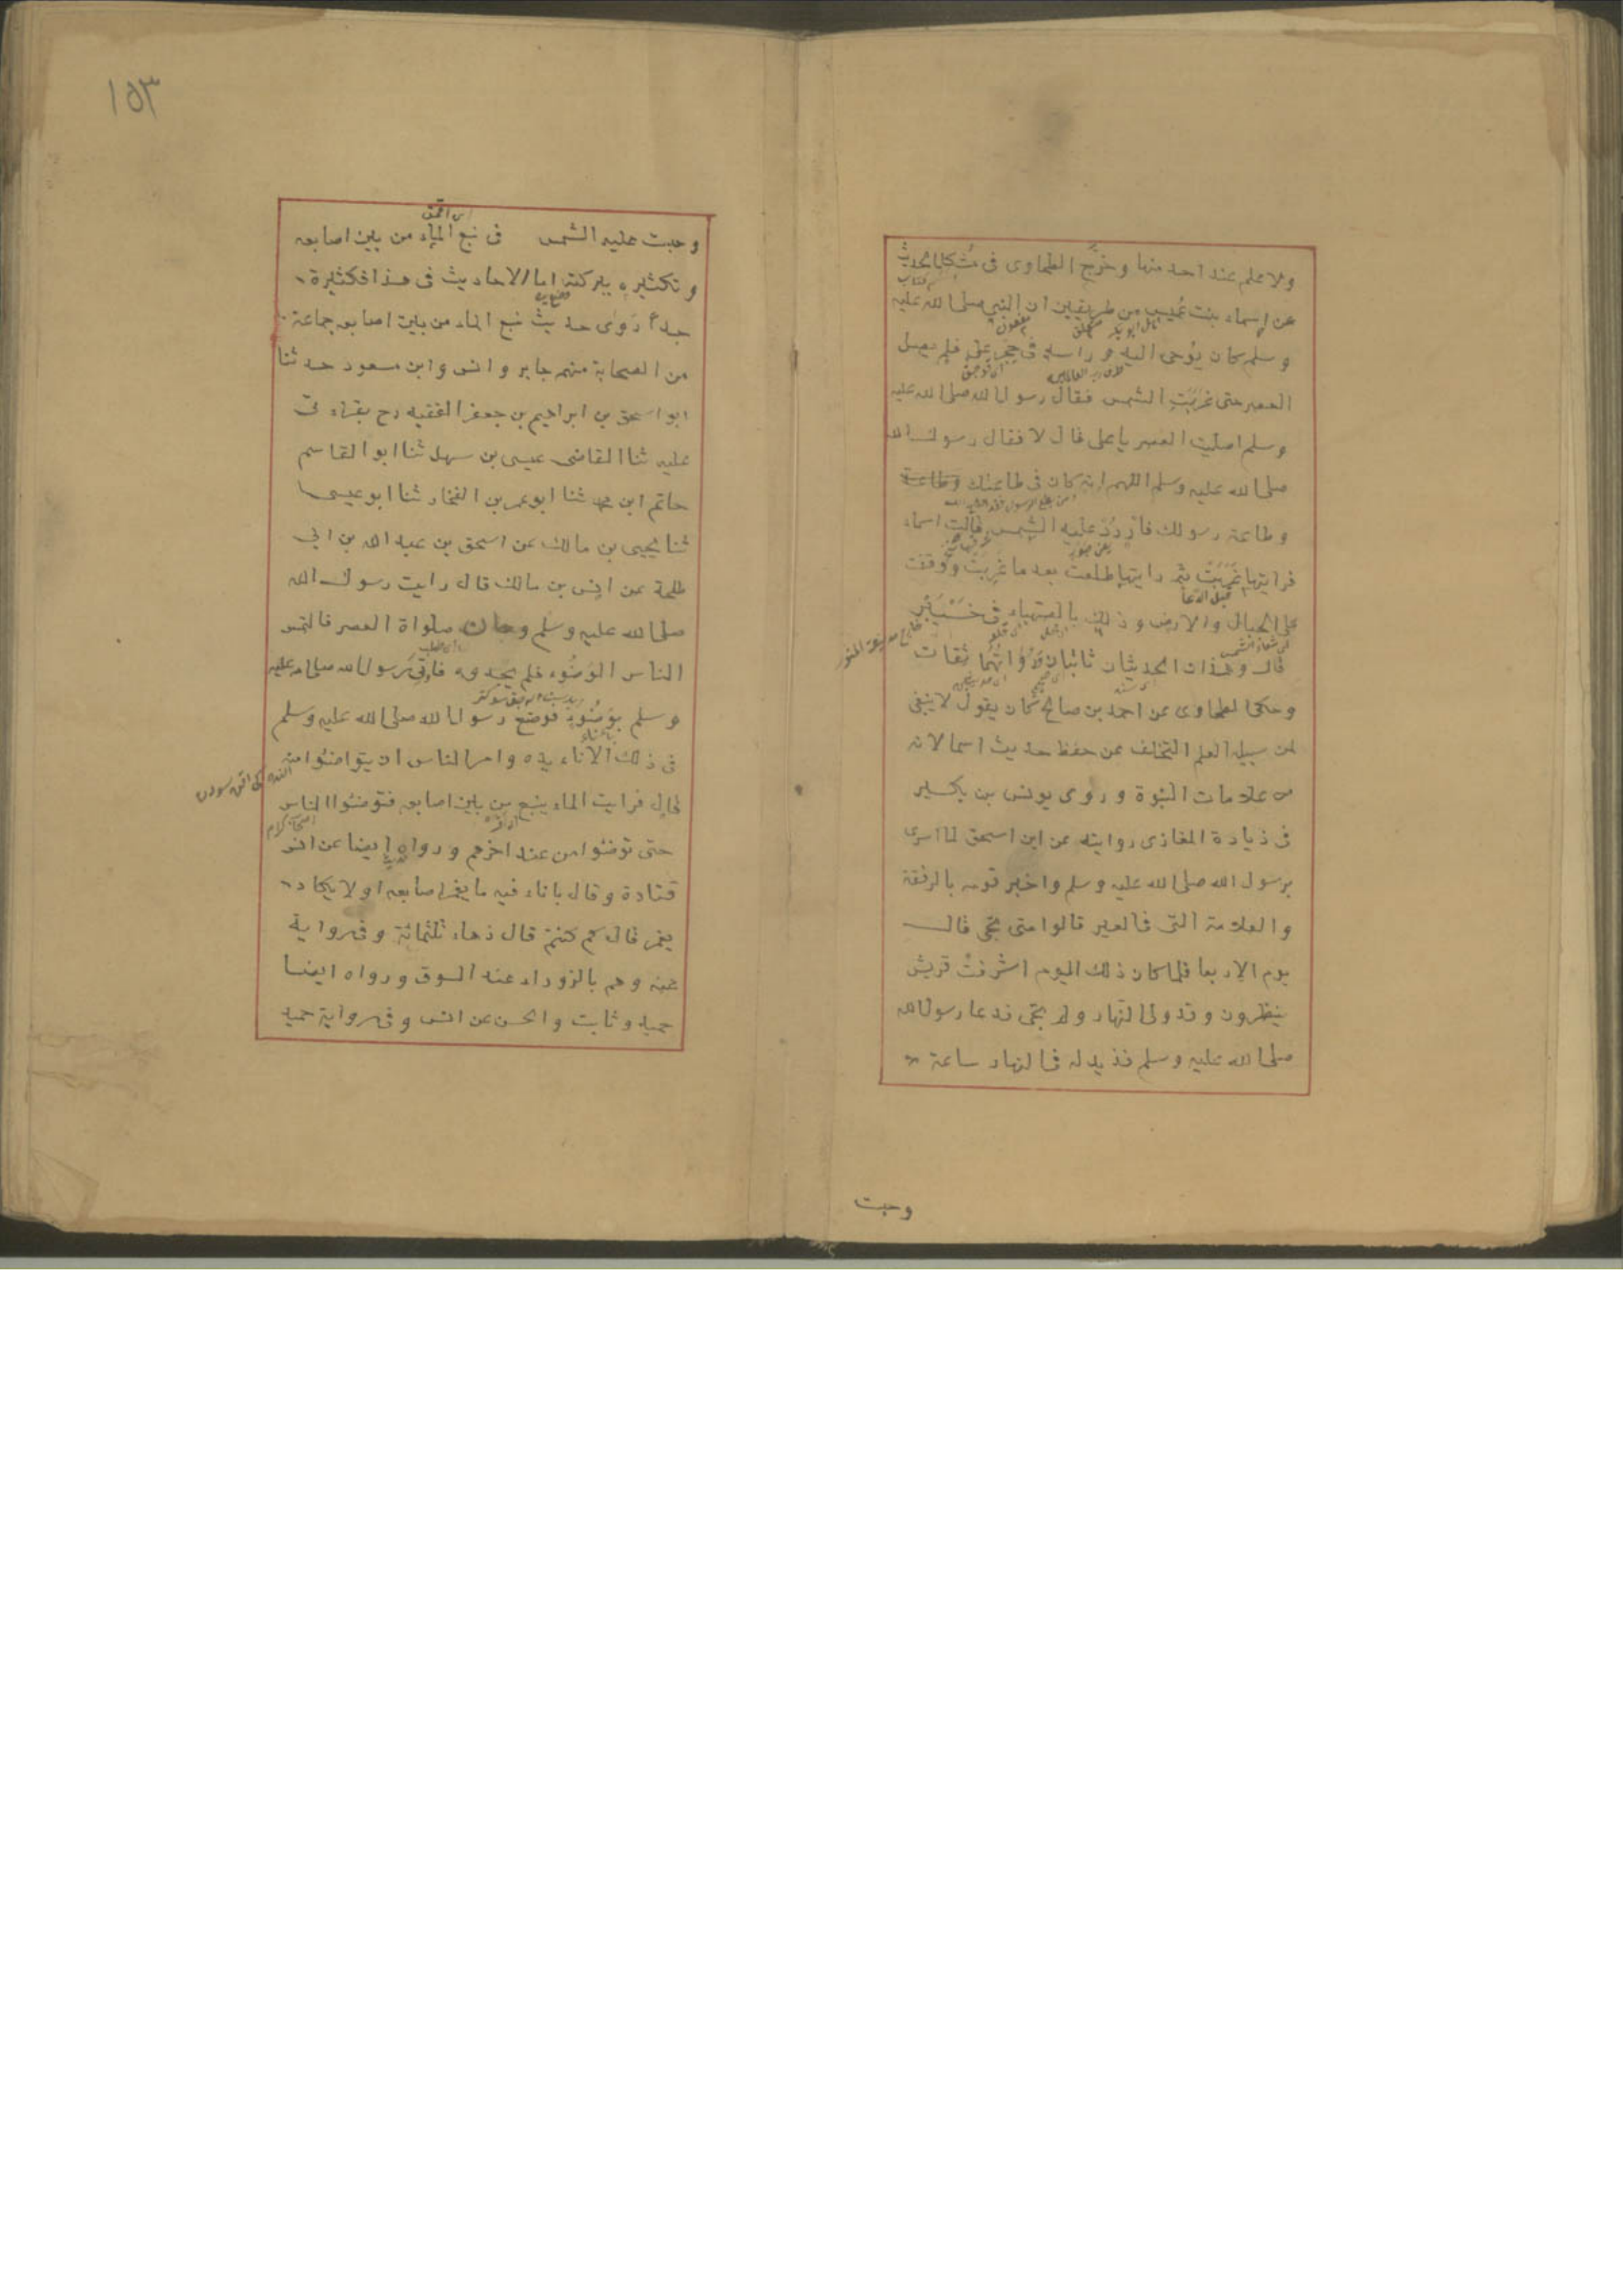 ولا علم عند احد منها وخرّج الطحاوى فى مُشكل الحديث
عن اسماء بنت عُميس من طريقين ان النبى صلى الله عليه
وسلم كان يُوحى اليه وراسه فى حِجر على فلم يصل
العصر حتى غَرَبَتِ الشمس فقال رسول الله صلى الله عليه
وسلم اصليت العصر يا على قال لا فقال رسول الله
صلى الله عليه وسلم اللهم انه كان فى طاعتك وطاعة
وطاعة رسولك فاردُدْ عليه الشمس قالت اسماء
فرايتها غَرَبَتْ ثم رايتها طلعت بعد ما غَرَبَتْ ووقفت
قبل الدعا
على الجبال والارض وذلك بالصهباء فى خَيْبَر
شعاع الشمس
قال وهذان الحديثان ثابتان ورُوَاتُهُما ثقات
وحكى الطحاوى عن احمد بن صالح كان يقول لا ينبغى
لمن سبيله العلم التخلف عن حفظ حديث اسما لانه
من علامات النبوة وروى يونس بن بكير
فى زيادة المغازى روايته عن ابن اسحق لما اسرى
برسول الله صلى الله عليه وسلم واخبر قومه بالرفقة
والعلامة التى فى العير قالوا متى تجى قال
يوم الاربعا فلما كان ذلك اليوم اشرفتْ قريش
ينظرون وقد ولى النهار ولم تجى فدعا رسول الله
صلى الله عليه وسلم فزيد له فى النهار ساعة
وحبت
١٥٣
وحبت عليه الشمس فى نبع الماء من بين اصابعه
وتكثيره ببركته اما الاحاديث فى هذا فكثيرة
جداً رَوى حديث نبع الماء من بين اصابعه جماعة
من الصحابة منهم جابر وانس وابن مسعود حدثنا
ابو اسحق بن ابراهيم بن جعفر الفقيه رح بقراءتى
عليه ثنا القاضى عيسى بن سهل ثنا ابو القاسم
حاتم ابن محمد ثنا ابو عمر بن الفخار ثنا ابو عيسى
ثنا يحيى بن مالك عن اسحق بن عبد الله بن ابى
طلحة عن انس بن مالك قال رايت رسول الله
صلى الله عليه وسلم وحان صلواة العصر فالتمس
الناس الوَضُوء فلم يجدوه فاُتِىَ رسول الله صلى الله عليه
وسلم بوَضُوءٍ فوضع رسول الله صلى الله عليه وسلم
فى ذلك الاناء يده وامر الناس ان يتوضئوا منه
قال فرايت الماء ينبع من بين اصابعه فتوضئوا الناس
حتى توضئوا من عند اخرهم ورواه ايضا عن انس
قتادة وقال باناء فيه ما يغمر اصابعه او لا يكاد
يغمر قال كم كنتم قال زهاء ثلثمائة وفى رواية
عنه وهم بالزوراء عند السوق ورواه ايضا
حميد وثابت والحسن عن انس وفى رواية حميد